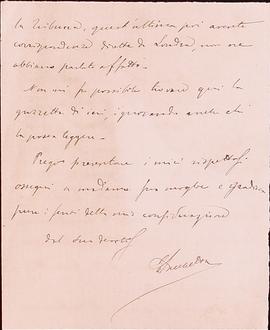 la Tribuna, quest'ultima poi avente
corrispondenza diretta da Londra, non ne
abbiano parlato affatto.
Non mi fu possibile trovare qui la
gazzetta di ieri, ignorando anche chi
la possa leggere.
Prego presentare i miei rispettosi
ossequi a madama sua moglie e gradisca
pure i sensi della mia considerazione
del suo devot